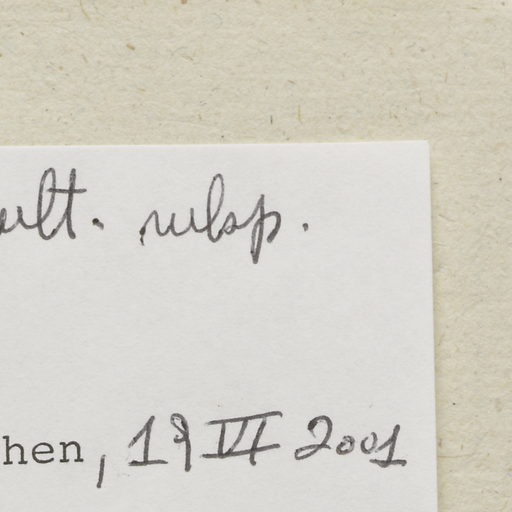 ult. subsp.
hen, 19 VI 2001